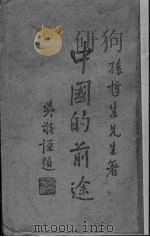 研狗
孫哲生先生著
中國的前途
吳敬恆題